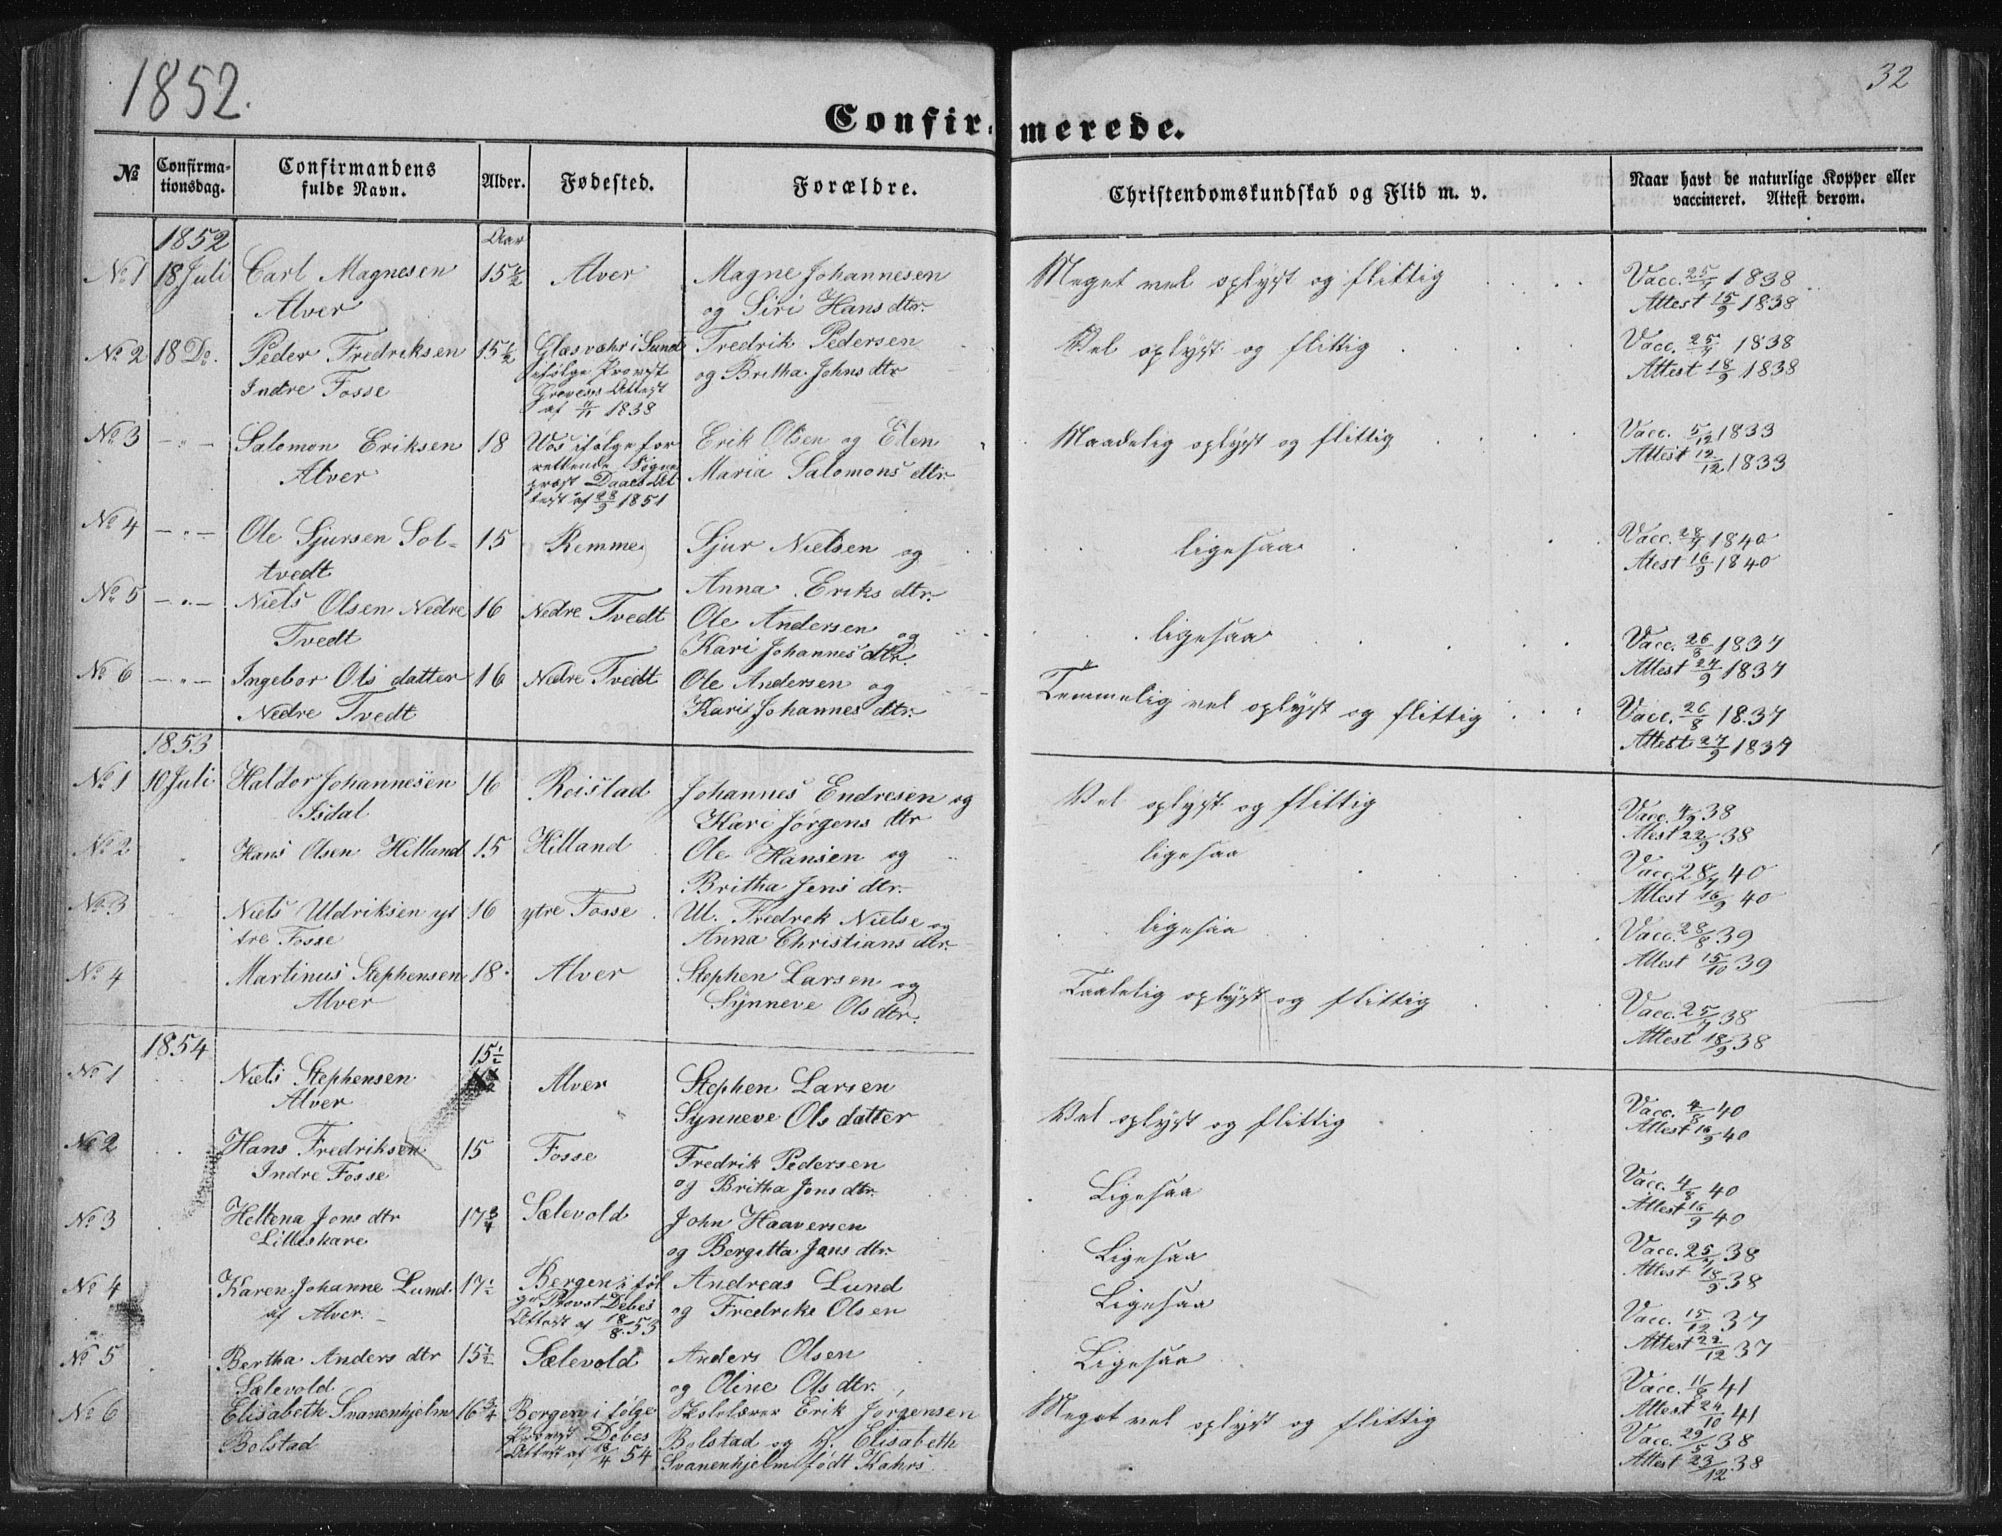 1852.
32
Confirmerede.
№ | Confirmationsdag. | Confirmandens fulde Navn. | Alder. | Fødested. | Forældre. | Christendomskundskab og Flid m. v. | Naar havt de naturlige Kopper eller vaccineret. Attest derom.
1852 Aar
No 1 18 Juli Carl Magnesen 15 1/2 Alver Magne Johannesen Meget vel oplyst og flittig Vacc. 25/7 1838
Alver og Siri Hans dtr. Attest 15/9 1838
No 2 18 Do. Peder Fredriksen 15 1/2 Glasvær i Sund Fredrik Pedersen Vel oplyst og flittig Vacc. 25/7 1838
Indre Fosse ifølge Provst og Britha Johns dtr Attest 18/9 1838
Attest
af 1838
No 3 — " — Salomon Eriksen 18 Vos ifølge for Erik Olsen og Elen Maadelig oplyst og flittig Vacc. 5/12 1833
Alver rettende Sogne Maria Salomons dtr. Attest 12/12 1833
præst Daaes At
test af 28/9 1851
No 4 — " — Ole Sjursen Sol- 15 Remme Sjur Nielsen og ligesaa Vacc. 28/7 1840
tvedt Anna Eriks dtr. Atest 16/9 1840
No 5 — " — Niels Olsen Nedre 16 Nedre Tvedt Ole Andersen og ligesaa Vacc. 26/8 1837
Tvedt Kari Johannes dtr. Attest 27/9 1837
No 6 — " — Ingebor Ols datter 16 Nedre Tvedt Ole Andersen og Temmelig vel oplyst og flittig Vacc. 26/8 1837
Nedre Tvedt Kari Johannes dtr. Attest 27/9 1837
1853
No 1 10 Juli Haldor Johannesen 16 Reistad Johannes Endresen og Vel oplyst og flittig Vacc. 4/9 38
Isdal Kari Jørgens dtr Atest 22/9 38
No 2 Hans Olsen Hilland 15 Hilland Ole Hansen og ligesaa Vacc. 28/7 40
Britha Jens dtr. Attest 16/9 40
No 3 Niels Uldriksen yt 16 ytre Fosse Ul. Fredrek Nielse og ligesaa Vacc. 28/8 39
tre Fosse Anna Christians dtr. Attest 15/10 39
No 4 Martinus Stephensen 18. Alver Stephen Larsen og Taalelig oplyst og flittig Vacc. 25/7 38
Alver Synneve Ols dtr. Attest 18/9 38
1854 15 1/2
No 1 Niels Stephensen Alver Stephen Larsen Vel oplyst og flittig Vacc. 4/8 40
Alver Synneve Ols datter Attest 16/9 40
No 2 Hans Fredriksen 15 Fosse Fredrik Pedersen Ligesaa Vacc. 4/8 40
Indre Fosse og Britha Jons dtr. Attest 16/9 40
No 3 Heltena Jons dtr 17 3/4 Sælevold John Haaversen Ligesaa Vacc. 25/7 38
Litleskare og Bergitta Jans dtr. Attest 18/9 38
No 4 Karen Johanne Lund. 17 1/2 Bergen i føl Andreas Lund Ligesaa Vacc. 15/12 37
af Alver. ge Provst Debes og Fredrike Olsen Attest 22/12 37
Attest af 18/8 53
No 5 Bertha Anders dtr 15 1/2 Sælevold Anders Olsen Ligesaa Vacc. 11/6 41
Sælevold og Oline Ols dtr. Attest 24/10 41
No 6 Elisabeth Svanenhjelm 16 3/4 Bergen i følge Skolelærer Erik Jørgensen Meget vel oplyst og flittig Vacc. 29/5 38
Bolstad Provst Debes Bolstad og H. Elisabeth Attest 23/12 38
Attest af 18/4 54 Svanenhjelm født Kahrs